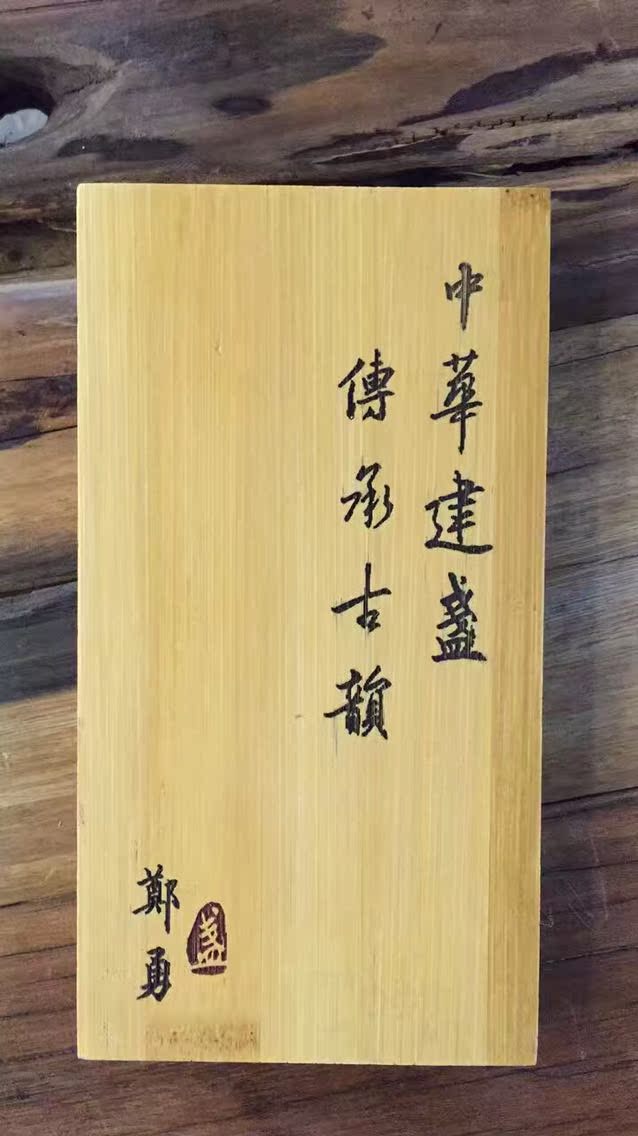 中華建盞
傳承古韻
鄭勇
盞